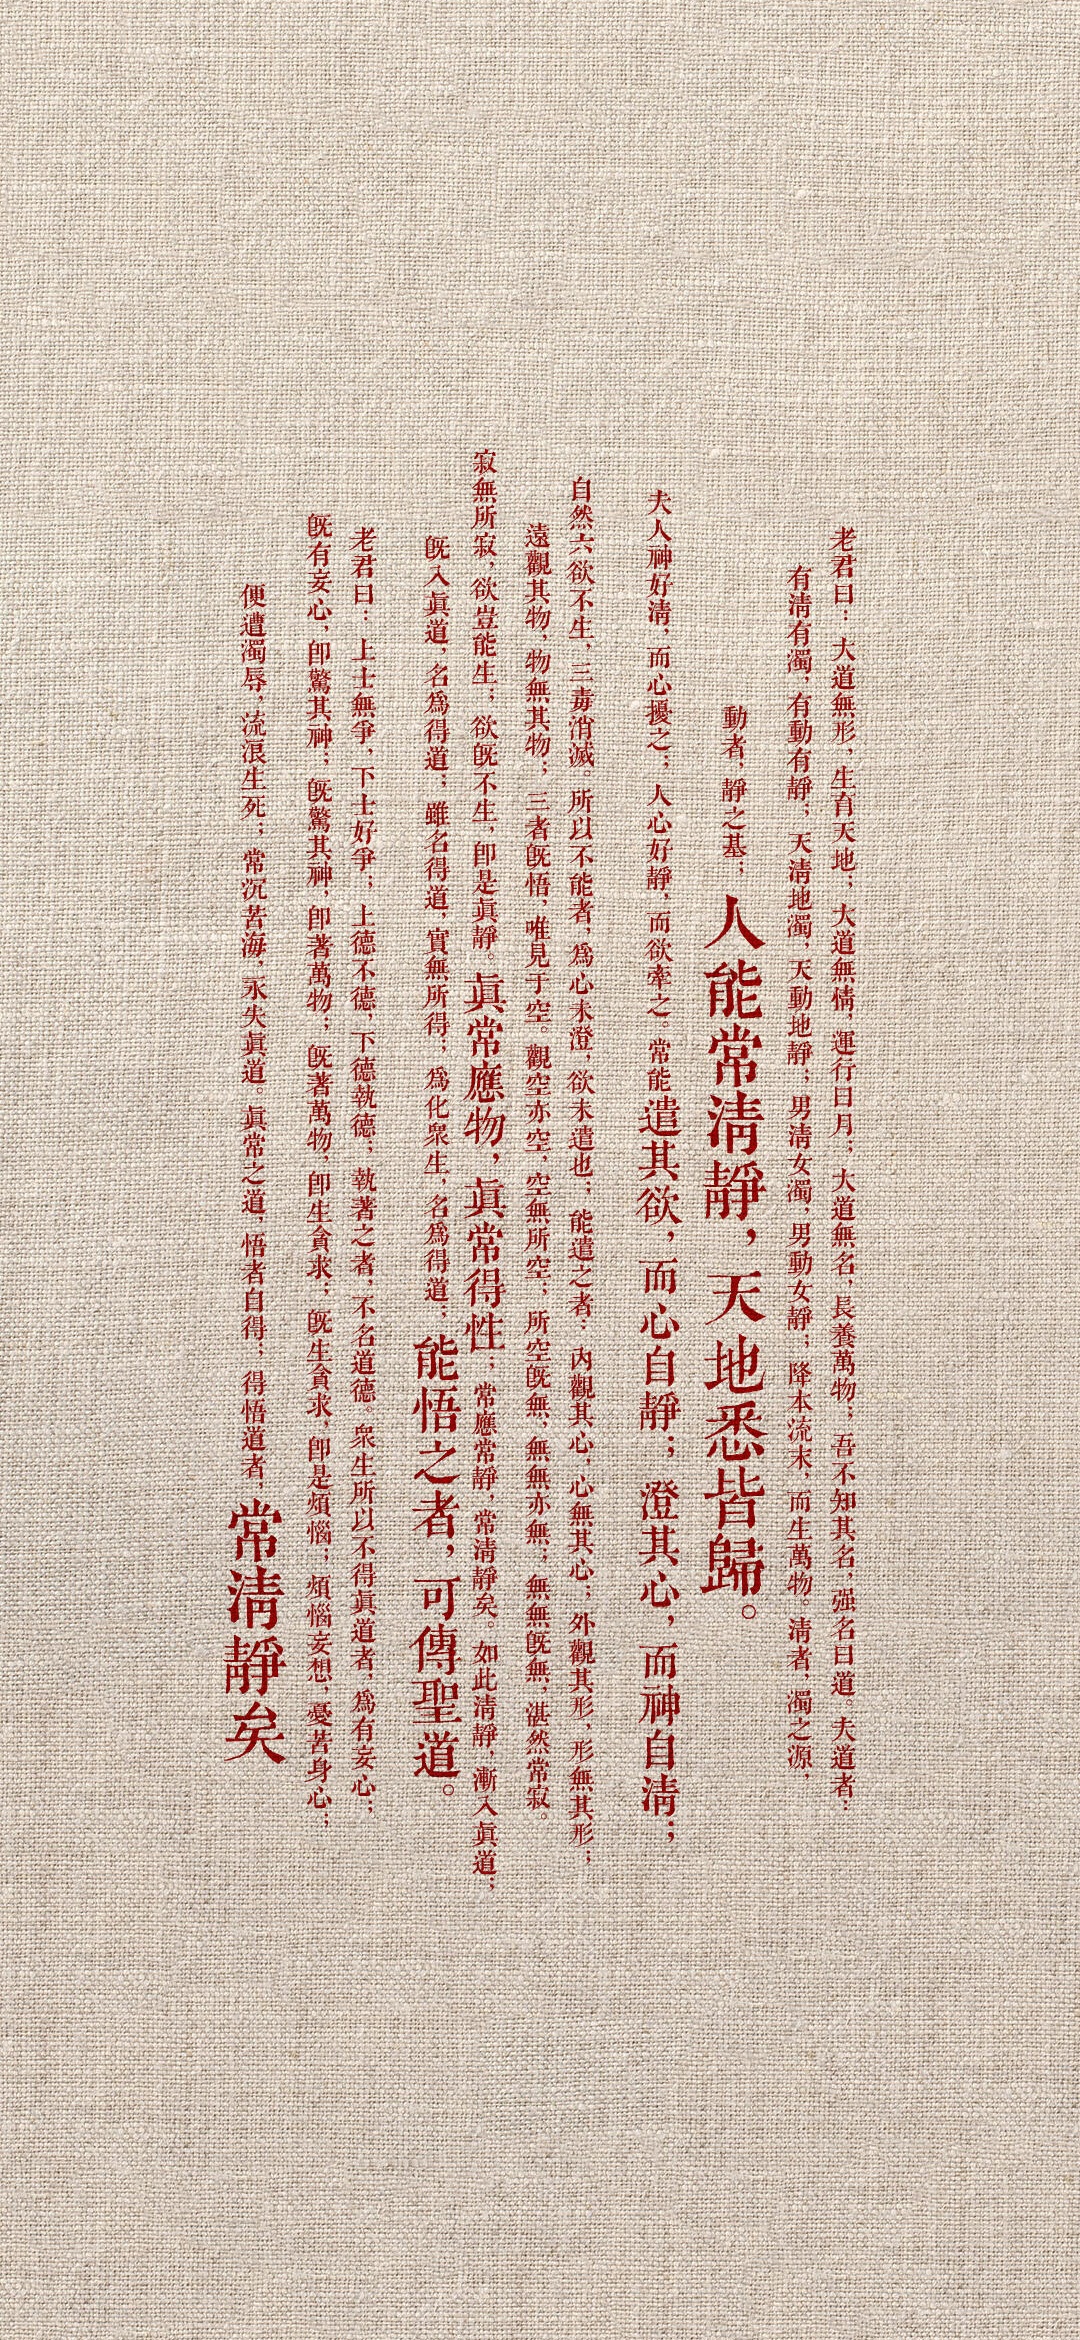 老君曰：大道無形，生育天地；大道無情，運行日月；大道無名，長養萬物；吾不知其名，強名曰道。夫道者：
有淸有濁，有動有靜；天淸地濁，天動地靜；男淸女濁，男動女靜；降本流末，而生萬物。淸者，濁之源，
動者，靜之基；人能常淸靜，天地悉皆歸。
夫人神好淸，而心擾之；人心好靜，而欲牽之。常能遣其欲，而心自靜；澄其心，而神自淸；
自然六欲不生，三毒消滅。所以不能者，爲心未澄，欲未遣也；能遣之者：內觀其心，心無其心；外觀其形，形無其形；
遠觀其物，物無其物；三者旣悟，唯見于空。觀空亦空，空無所空；所空旣無，無無亦無；無無旣無，湛然常寂。
寂無所寂，欲豈能生；欲旣不生，卽是眞靜。眞常應物，眞常得性；常應常靜，常淸靜矣。如此淸靜，漸入眞道；
旣入眞道，名爲得道；雖名得道，實無所得；爲化衆生，名爲得道；能悟之者，可傳聖道。
老君曰：上士無爭，下士好爭；上德不德，下德執德；執著之者，不名道德。衆生所以不得眞道者，爲有妄心；
旣有妄心，卽驚其神；旣驚其神，卽著萬物；旣著萬物，卽生貪求；旣生貪求，卽是煩惱；煩惱妄想，憂苦身心；
便遭濁辱，流浪生死；常沉苦海，永失眞道。眞常之道，悟者自得；得悟道者，常淸靜矣